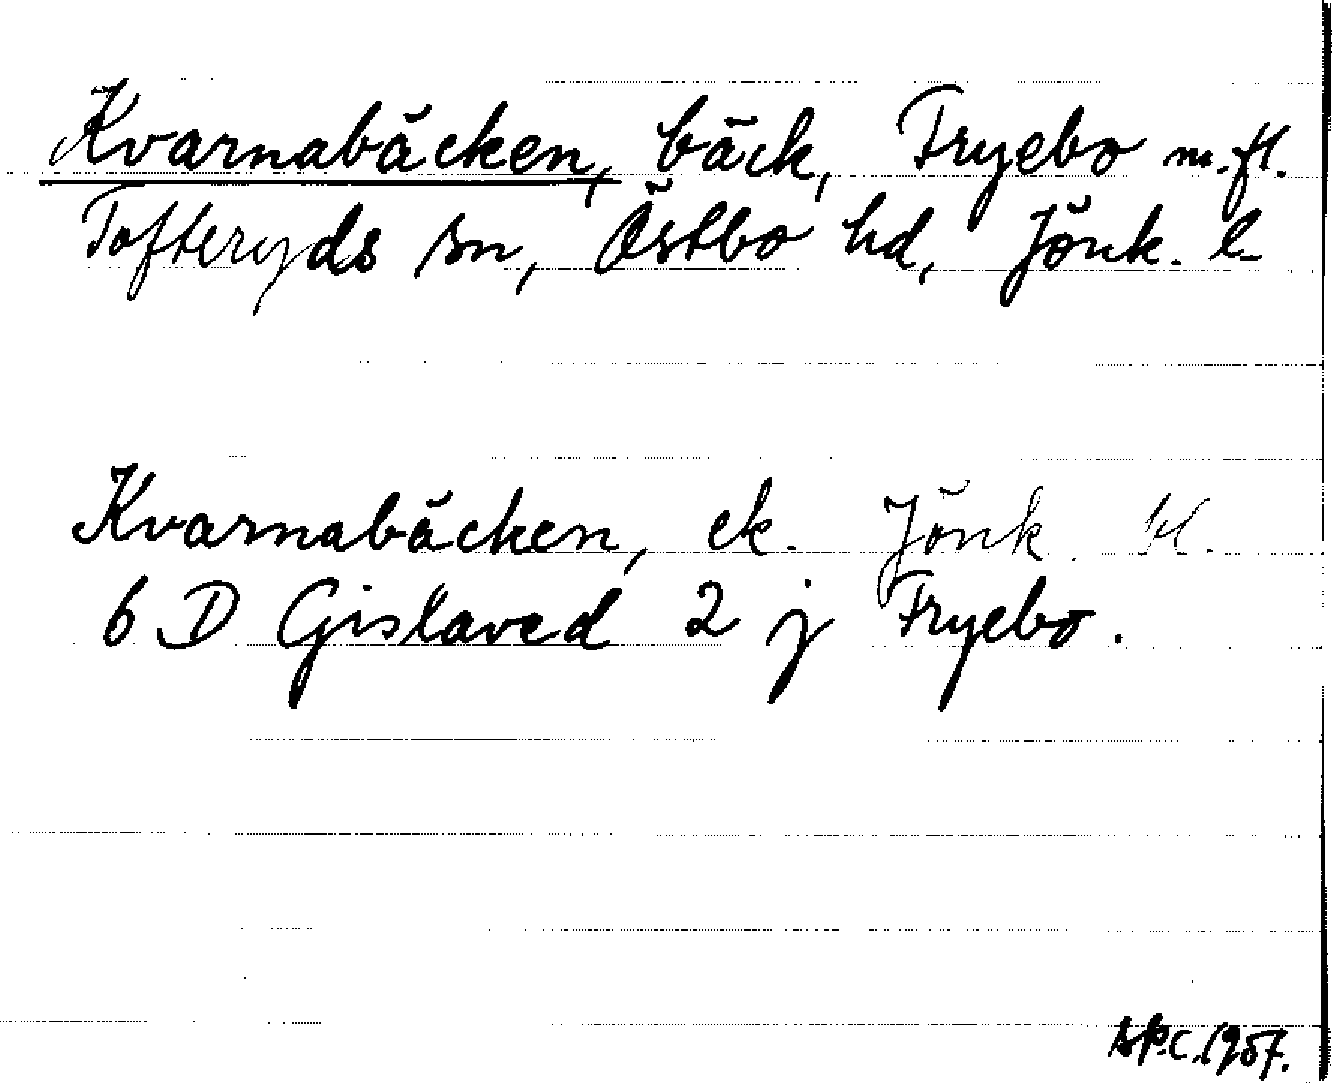 Kvarnabäcken, bäck, Fryebo m.fl.
Tofteryds sn, Östbo hd, Jönk. l.
Kvarnabäcken, ek. Jönk. bl.
6 D Gislaved 2 j Fryebo.
1957.